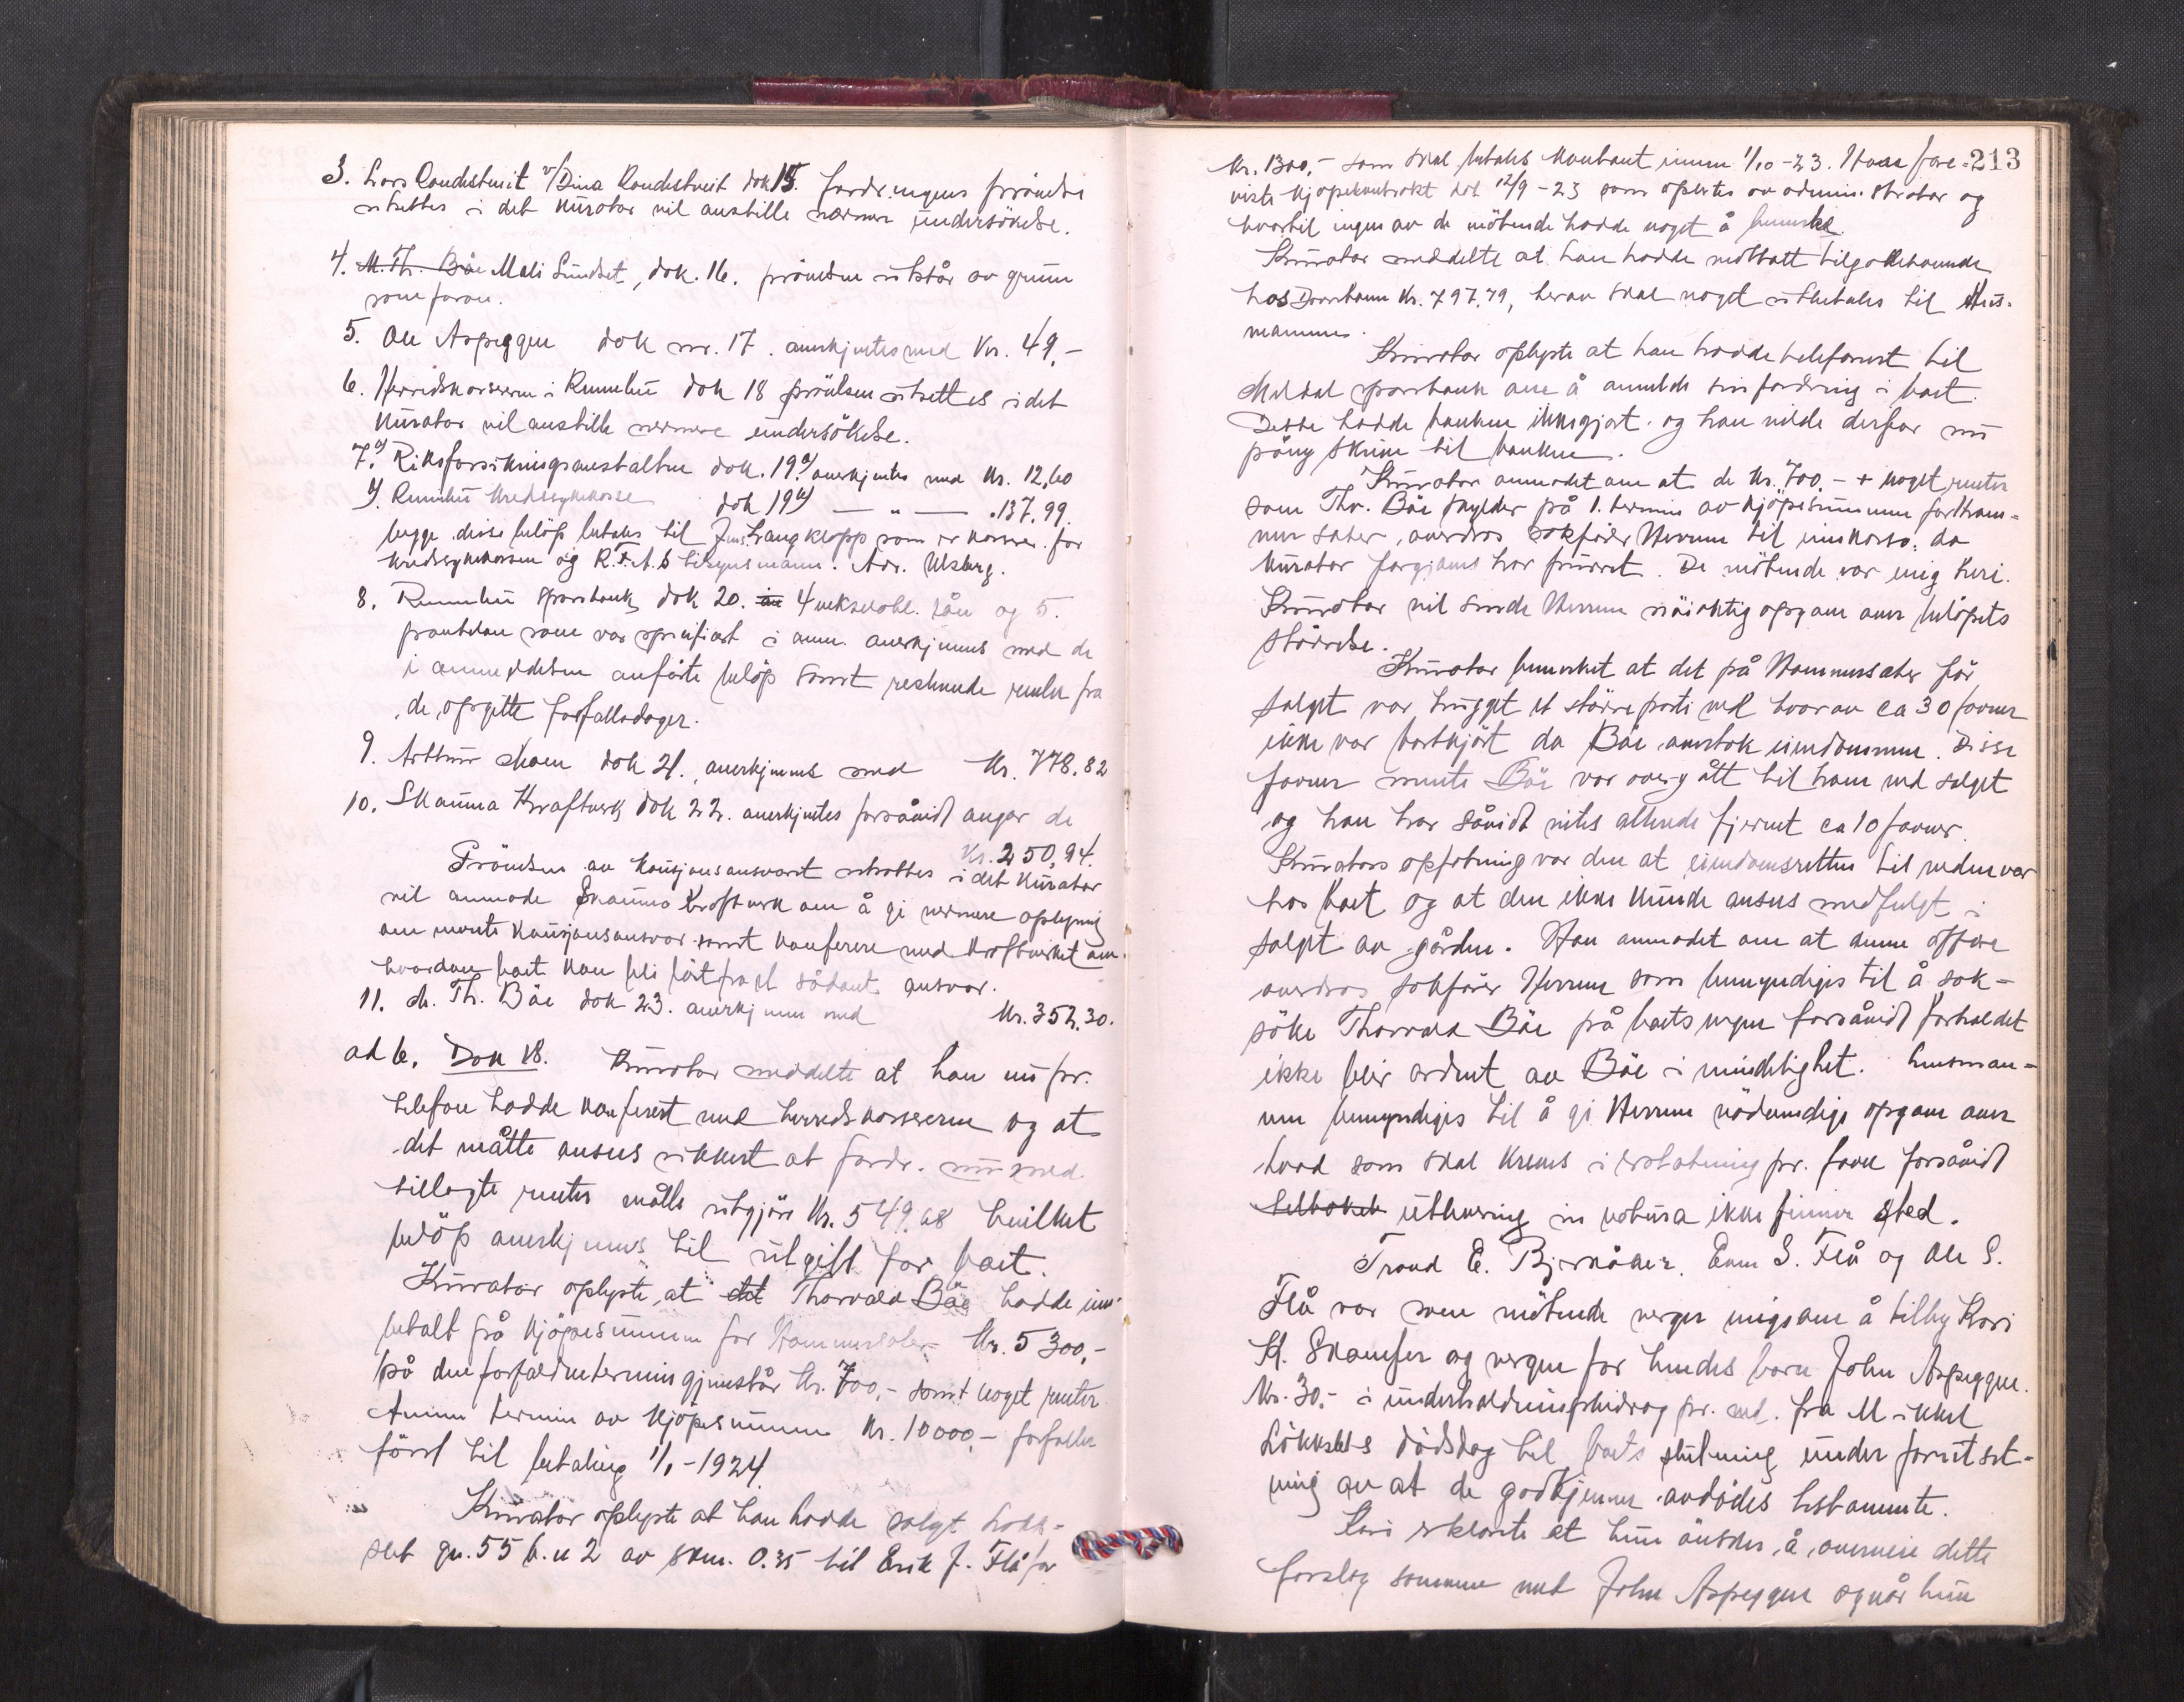 3. Lars Rondestveit v/Dina Rondestveit dok 15. fordringens prövelse
utsettes i det kurator vil anstille nærmere undersökelse.
4. M. Th. Böe Mali Sundset, dok. 16. prövelse utstår av grunn
som foran.
5. Ole Aspeggen dok nr. 17. anerkjentes med Kr. 49,-
6. Herredskassereren i Rennebu dok 18 prövelsen utsettes i det
kurator vil anstille nærmere undersökelse.
7. a) Riksforsikringsanstalten dok. 19 a) anerkjentes med Kr. 12,60
b) Rennebu kredssykekasse dok 19 b) — " — . 137.99.
begge disse belöp betales til Jens Langklopp som er kasserer for
kredssykekassen og R.F.A.s tilsynsmann. Adr. Ulsberg.
8. Rennebu sparebank dok 20. an 4 vekselobl. lån og 5.
pantelån som var spesifisert i anm. anerkjennes med de
i anmeldelsen anförte belöp samt resterende renter fra
de opgitte forfallsdager.
9. Arthur Moen dok 21. anerkjennes med Kr. 778.82
10. Skauma Kraftverk dok 22. anerkjentes forsåvidt angår de
Kr. 250,94.
Prövelsen av kausjonsansvaret utsettes i det kurator
vil anmode Skauma Kraftverk om å gi nærmere oplysning
om mente kausjonsansvar samt konferere med Kraftverket om
hvordan boet kan bli fritatt sådant ansvar.
11. M. Th. Böe dok 23. anerkjennes med Kr. 352.30.
ad 6. Dok 18. Kurator meddelte at han nu pr.
telefon hadde konferert med herredskassereren og at
det måtte ansees sikkert at fordr. nu med
tillagte renter måtte utgjöre Kr. 549.68 hvilket
belöp anerkjennes til utgift for boet.
Kurator oplyste, at det Thorvald Böe hadde inn-
betalt på kjöpesummen for Hammersæter Kr. 5300,-
På den forfaldne termin gjenstår Kr. 700,- samt noget renter.
Annen termin av kjöpesummen Kr. 10000,- forfaller
först til betaling 1/1-1924.
Kurator oplyste at han hadde solgt Lökk-
set gn. 55 b.n 2 av skm. 0.35 til Erik J. Flå for
213
Kr. 1300,- som skal betales kontant innen 1/10-23. Han fore-
viste kjöpekontrakt dat. 12/9-23 som oplestes av administrator og
hvortil ingen av de mötende hadde noget å bemerke.
Kurator meddelte at han hadde mottatt tilgodehavende
hos Kr. 797.79, herav skal noget utbetales til Hus-
mannen.
Kurator oplyste at han hadde telefonert til
Meldal sparebank om å anmelde sin fordring i boet.
Dette hadde banken ikke gjort. og han vilde derfor nu
påny skrive til banken.
Kurator anmodet om at de Kr. 700.- + noget renter
som Thv. Böe skylder på 1. termin av kjöpesummen for Ham-
mersæter, overdras sakförer Herrem til innkasso, da
kurator forgjæves har purret. De mötende var enig heri.
Kurator vil sende Herrem nöiaktig opgave over belöpets
störrelse.
Kurator bemerket at det på Hammersæter för
salget var hugget et större parti ved hvorav ca 30 favner
ikke var bortkjört da Böe overtok eiendommen. Disse
favner mente Böe var overgått til ham ved salget
og han har såvidt vites allerede fjernet ca 10 favner.
Kurators opfatning var den at eiendomsretten til veden var
hos boet og at den ikke kunde ansees medfulgt i
salget av gården. Han anmodet om at denne affære
overdras sakförer Herrem som bemyndiges til å sak-
söke Thorvald Böe på boets vegne forsåvidt forholdet
ikke blir ordnet av Böe i mindelighet. Husman-
nen bemyndiges til å gi Herrem nödvendige opgave over
hvad som skal kreves i erstatning pr. favn forsåvidt
utlevering in natura ikke finner sted.
Trond E. Bjerkåker. Even S. Flå og Ole S.
Flå var som mötende verger enige om å tilby Kari
K. Skamfer og vergen for hendes barn John Aspeggen.
Kr. 30.- i underholdningsbidrag pr. md. fra Mikkel
Lökksets dödsdag til boets slutning under forutset-
ning av at de godkjenner avdödes testamente.
Kari erklærte at hun önsker å overveie dette
forslag sammen med John Aspeggen og når hun